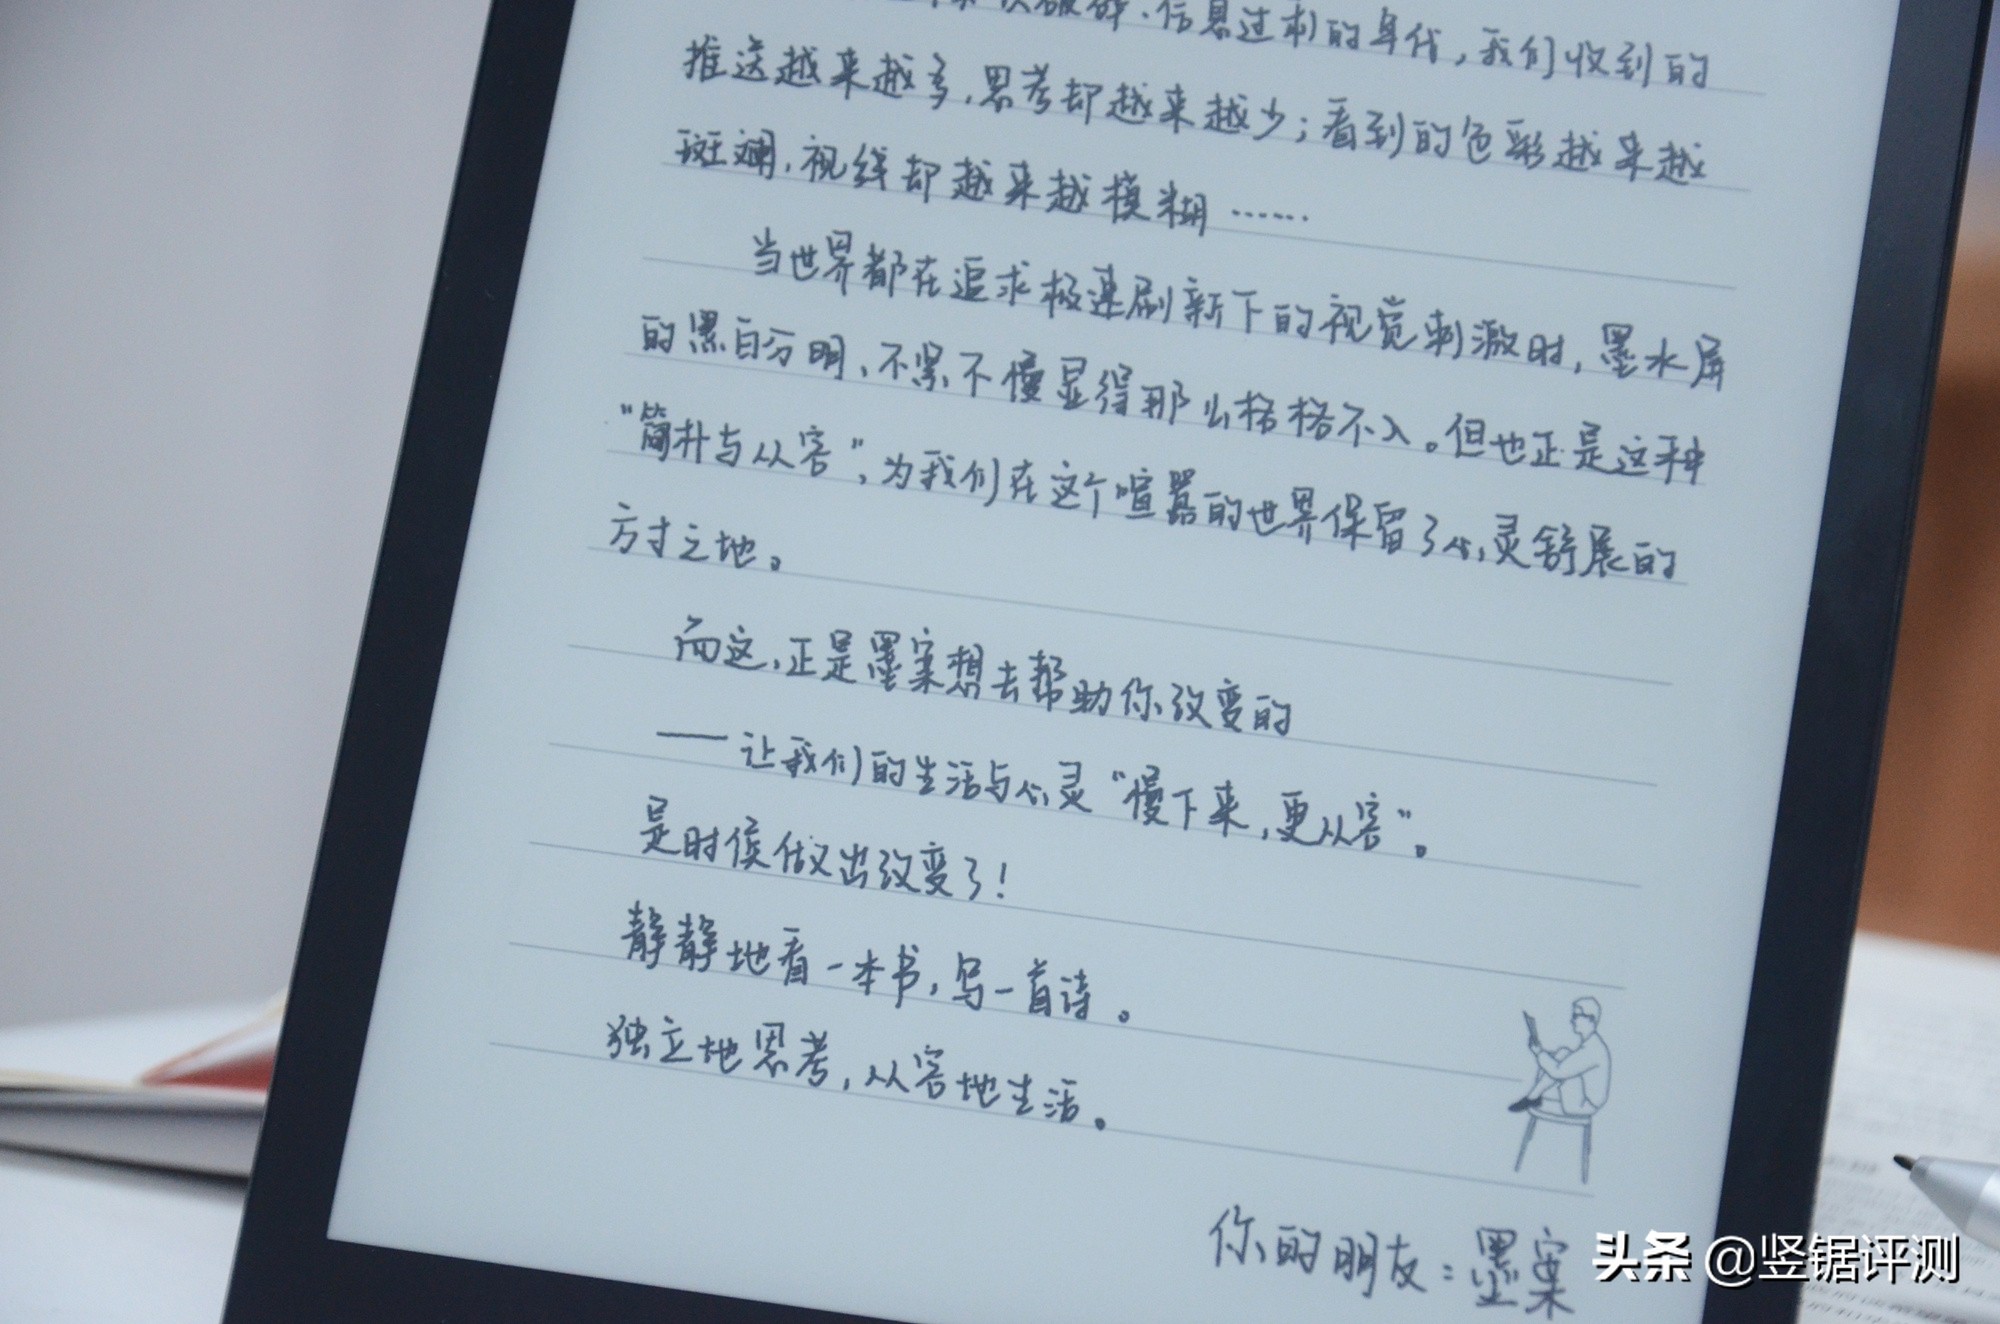 破碎、信息过剩的年代，我们收到的
推送越来越多，思考却越来越少；看到的色彩越来越
斑斓，视线却越来越模糊……
当世界都在追求极速刷新下的视觉刺激时，墨水屏
的黑白分明、不紧不慢显得那么格格不入。但也正是这种
“简朴与从容”，为我们在这个喧嚣的世界保留了心灵舒展的
方寸之地。
而这，正是墨案想去帮助你改变的
——让我们的生活与心灵“慢下来，更从容”。
是时候做出改变了！
静静地看一本书，写一首诗。
独立地思考，从容地生活。
你的朋友：墨案
头条 @竖锯评测